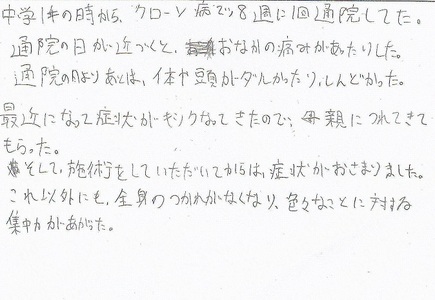 中学1年の時から、クローン病で8週に1回通院してた。
通院の日が近づくと、おなかの痛みがあったりした。
通院の日よりあとは、体や頭がダルかったり、しんどかった。
最近になって症状がキツくなってきたので、母親につれてきて
もらった。
そして、施術をしていただいてからは、症状がおさまりました。
これ以外にも、全身のつかれがなくなり、色々なことに対する
集中力があがった。